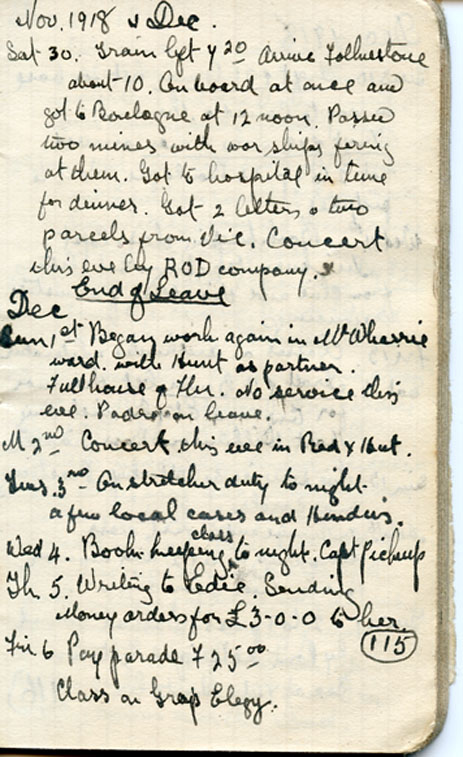 Nov. 1918 & Dec.
Sat 30. Train left 7 20 Arrive Folkestone
about 10. On board at once and
got to Boulogne at 12 noon. Passed
two mines with war ships firing
at them. Got to hospital in time
for dinner. Got 2 letters & two
parcels from Vic. Concert
this eve by ROD company.
End of Leave
Dec
Sun 1st Began work again in McWharrie
ward. with Hunt as partner.
Full house of Flu. No service this
eve. Padre on leave.
M 2nd Concert this eve in Red X Hut.
Tues. 3rd On stretcher duty to night
a few local cases and Hindus.
class
Wed 4. Book keeping to night. Capt Pickup
Th. 5. Writing to Edie. Sending
Money orders for £3-0-0 to her.
115
Fri 6 Pay parade F 25 00
Class on Grays Elegy.